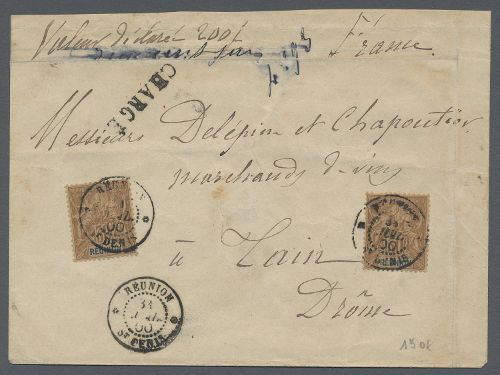 Valeur déclaré 200f
France
CHARGÉ
Messieurs Delépion et Chapoutier
marchands de vins
à Tain
Drôme
RÉUNION
ST DENIS
RÉUNION
DENIS
RÉUNION
31
00
ST DENIS